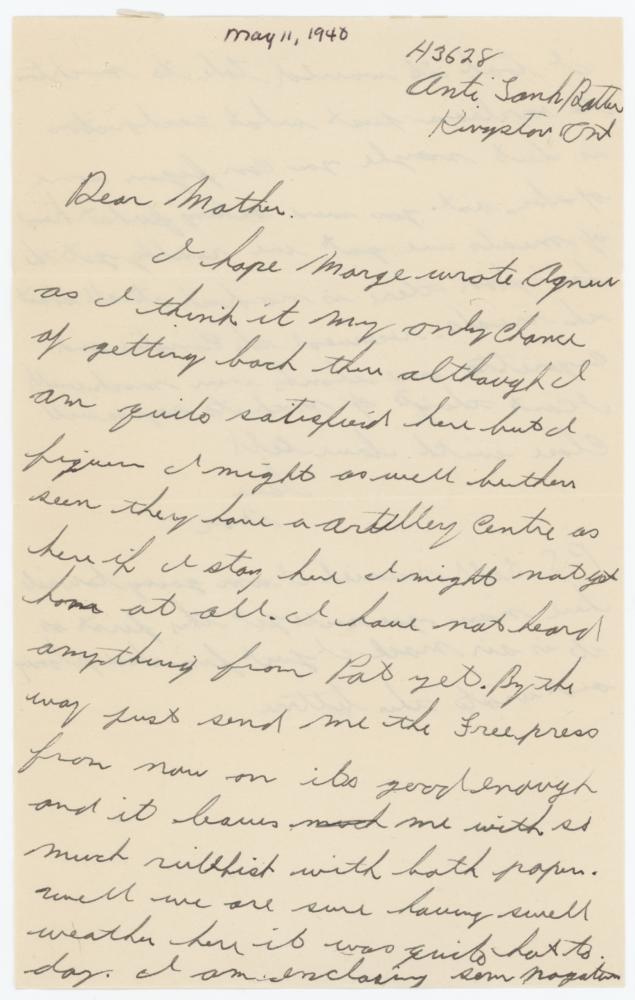 May 11, 1940
H3628
Anti Tank Batter
Kingston Ont
Dear Mother.
I hope Marge wrote Agnew
as I think it my only chance
of getting back ther although I
am quito satisfied here but I
figure I might as well be ther
seen they have a artillery Centre as
here if I stay here I might not get
home at all. I have not heard
anything from Pat yet. By the
way just send me the Free press
from now on its good enough
and it leaves me with so
much rubbist with both papers.
well we are sure having swell
weather here it was quito hot to
day. I am enclosing som nagatives